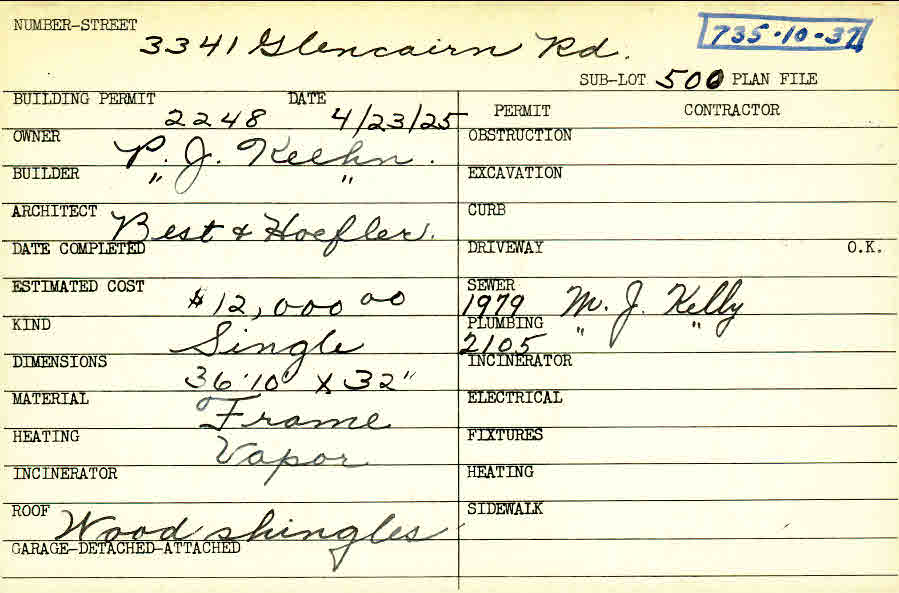 NUMBER-STREET
3341 Glencairn Rd.
735-10-37
SUB-LOT 500 PLAN FILE
BUILDING PERMIT DATE
2248 4/23/25
PERMIT CONTRACTOR
OWNER P. J. Keehn.
OBSTRUCTION
BUILDER " "
EXCAVATION
ARCHITECT Best & Hoefler.
CURB
DATE COMPLETED
DRIVEWAY O.K.
ESTIMATED COST $12,000 00
SEWER
1979 M. J. Kelly
KIND Single
PLUMBING " "
2105
DIMENSIONS 36'10" x 32"
INCINERATOR
MATERIAL Frame
ELECTRICAL
HEATING Vapor
FIXTURES
INCINERATOR
HEATING
ROOF Wood shingles
SIDEWALK
GARAGE-DETACHED-ATTACHED